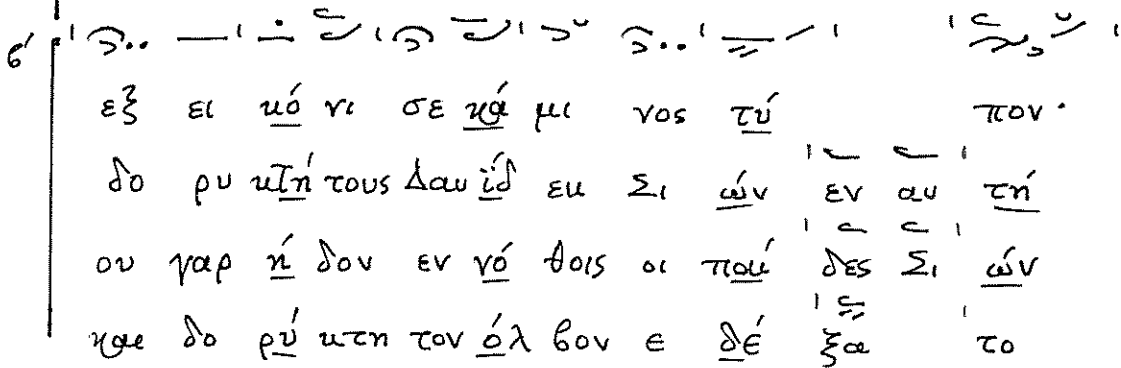 ϛ´
εξ ει κό νι σε κά μι νος τύ πον·
δο ρυ κτή τους Δαυ ΐδ εκ Σι ών εν αυ τή
ου γαρ ή δον εν νό θοις οι παί δες Σι ών
και δο ρύ κτη τον όλ βον ε δέ ξα το